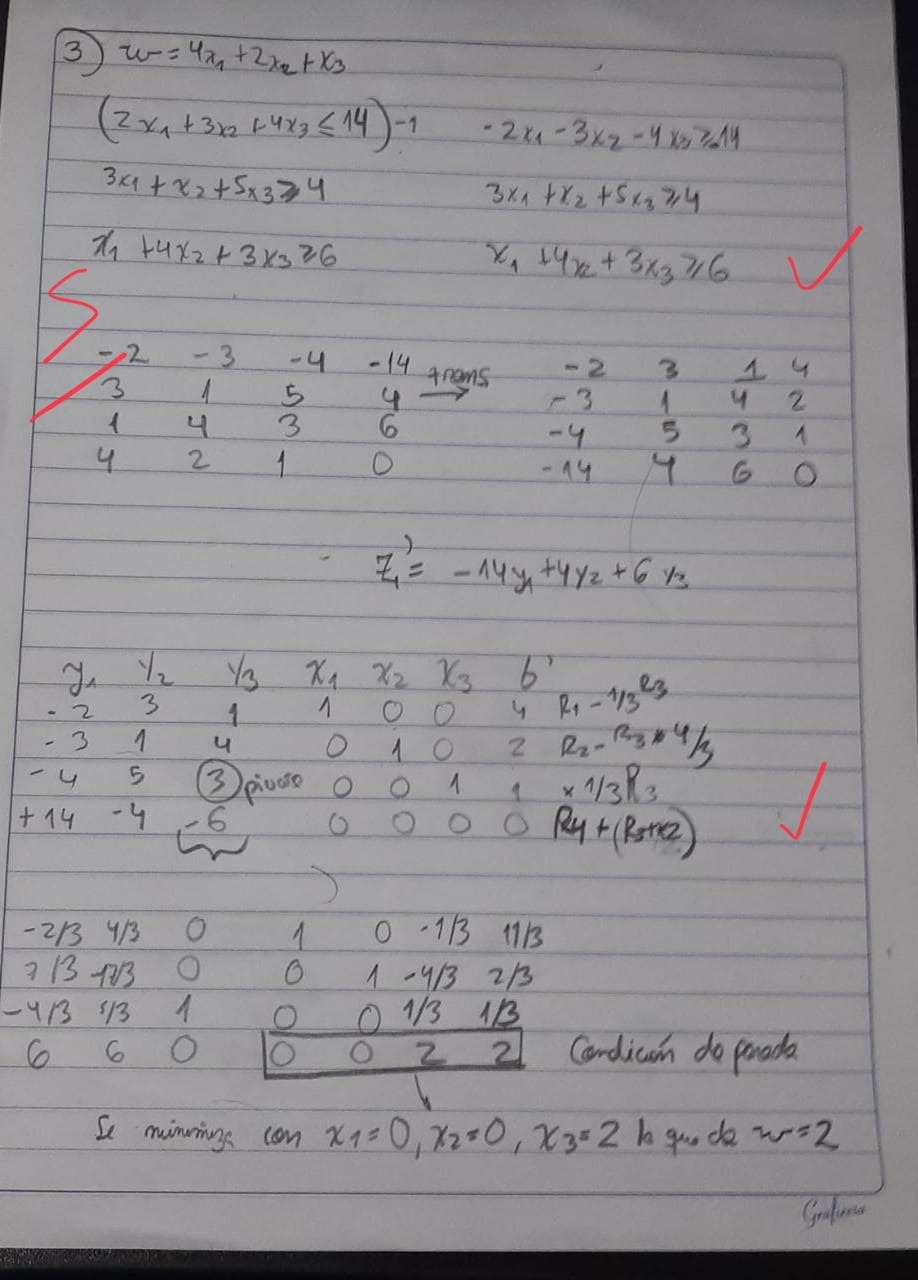 3) w = 4x₁ + 2x₂ + x₃
(2x₁ + 3x₂ + 4x₃ ≤ 14) -1    -2x₁ - 3x₂ - 4x₃ ≥ 14
3x₁ + x₂ + 5x₃ ≥ 4    3x₁ + x₂ + 5x₃ ≥ 4
x₁ + 4x₂ + 3x₃ ≥ 6    x₁ + 4x₂ + 3x₃ ≥ 6 ✓
5
-2 -3 -4 -14 trans → -2 3 1 4
3 1 5 4 -3 1 4 2
1 4 3 6 -4 5 3 1
4 2 1 0 -14 4 6 0
Z' = -14y₁ + 4y₂ + 6y₃
y₁ y₂ y₃ x₁ x₂ x₃ b'
-2 3 1 1 0 0 4 R₁ - 1/3 R3
-3 1 4 0 1 0 2 R₂ - R₃ * 4/3
-4 5 (3) pivote 0 0 1 1 x 1/3 R₃
+14 -4 -6 0 0 0 0 R4 + (R3 * 2) ✓
-2/3 4/3 0 1 0 -1/3 11/3
7/3 -17/3 0 0 1 -4/3 2/3
-4/3 5/3 1 0 0 1/3 1/3
6 6 0 0 0 2 2 Condición de parada
Se minimiza con x₁=0, x₂=0, x₃=2 lo que da w=2
Grafema